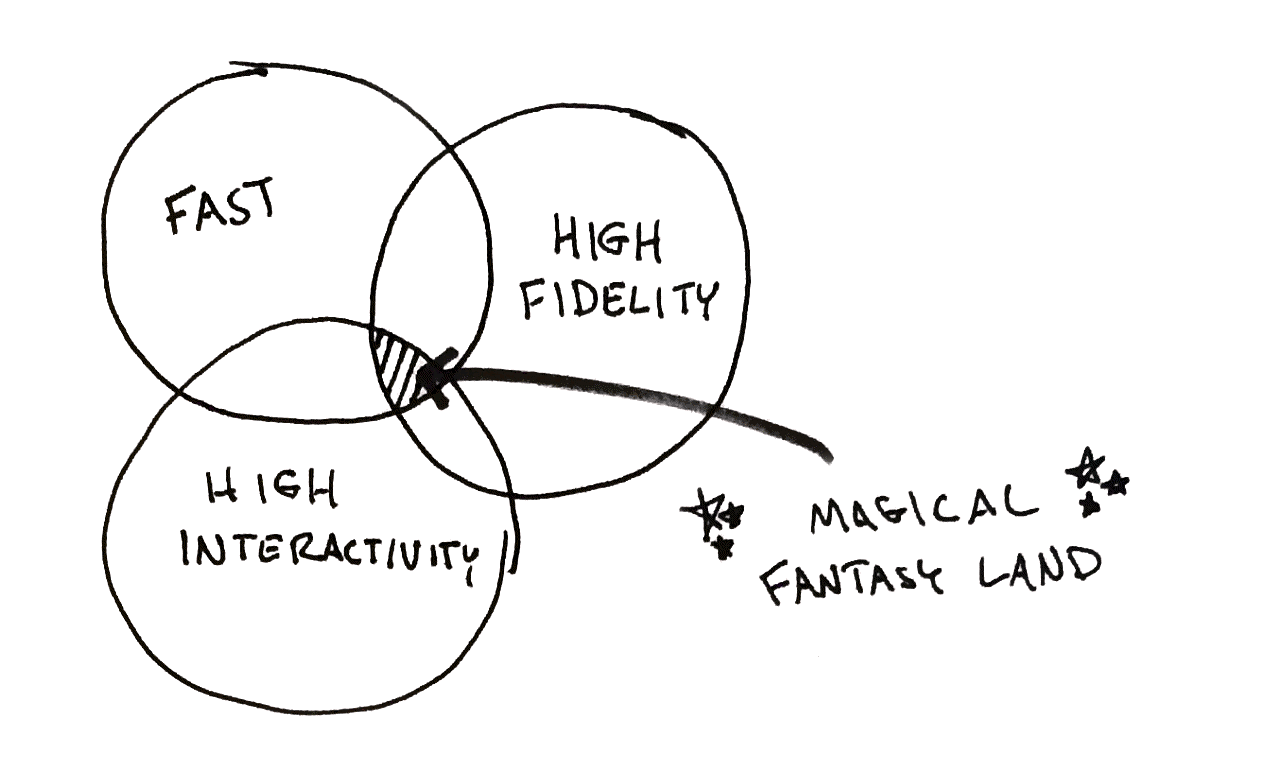 FAST
HIGH
FIDELITY
HIGH
INTERACTIVITY
MAGICAL
FANTASY LAND